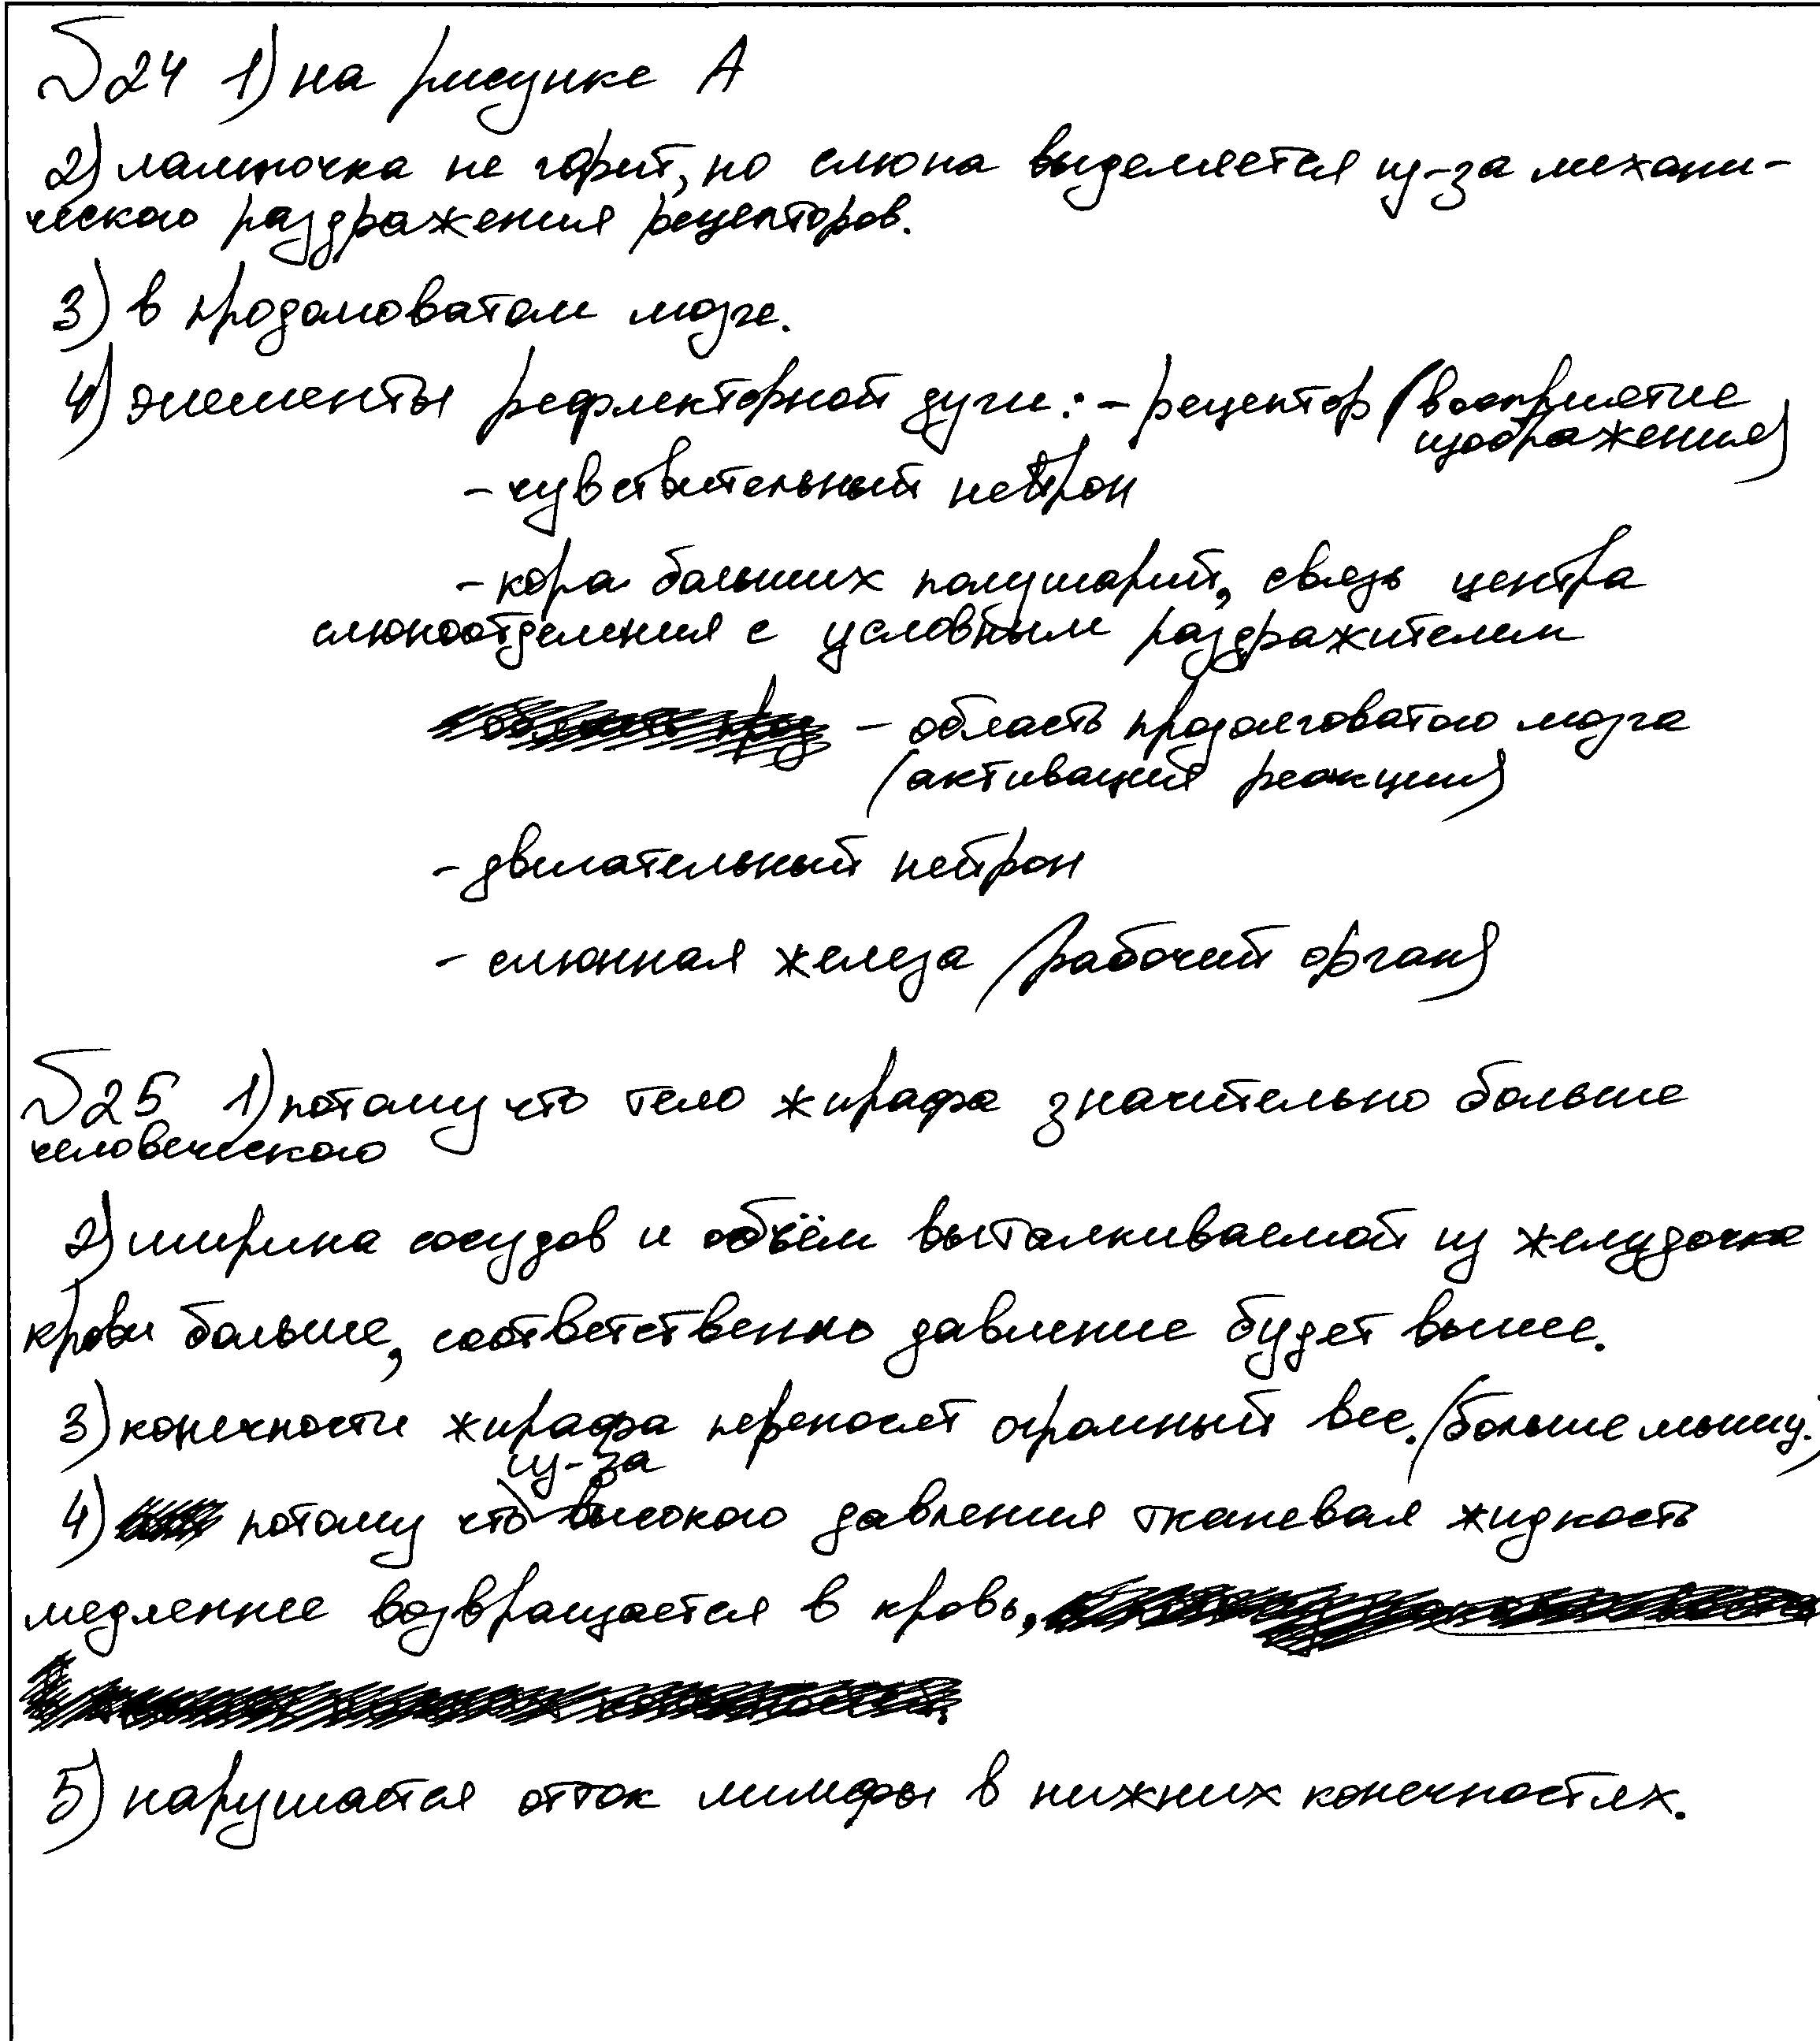 №24 1) на рисунке А
2) лампочка не горит, но слюна выделяется из-за механи-
ческого раздражения рецепторов.
3) в продолговатом мозге.
4) элементы рефлекторной дуги: - рецептор (восприятие
изображения)
- чувствительный нейрон
- кора больших полушарий, связь центра
слюноотделения с условным раздражителем
- область продолговатого мозга
(активация реакции)
- двигательный нейрон
- слюнная железа (рабочий орган)
№25 1) потому что тело жирафа значительно больше
человеческого
2) ширина сосудов и объём выталкиваемой из желудочка
крови больше, соответственно давление будет выше.
3) конечности жирафа переносят огромный вес. (больше мышц.)
из-за
4) потому что высокого давления тканевая жидкость
медленнее возвращается в кровь,
5) нарушается отток лимфы в нижних конечностях.